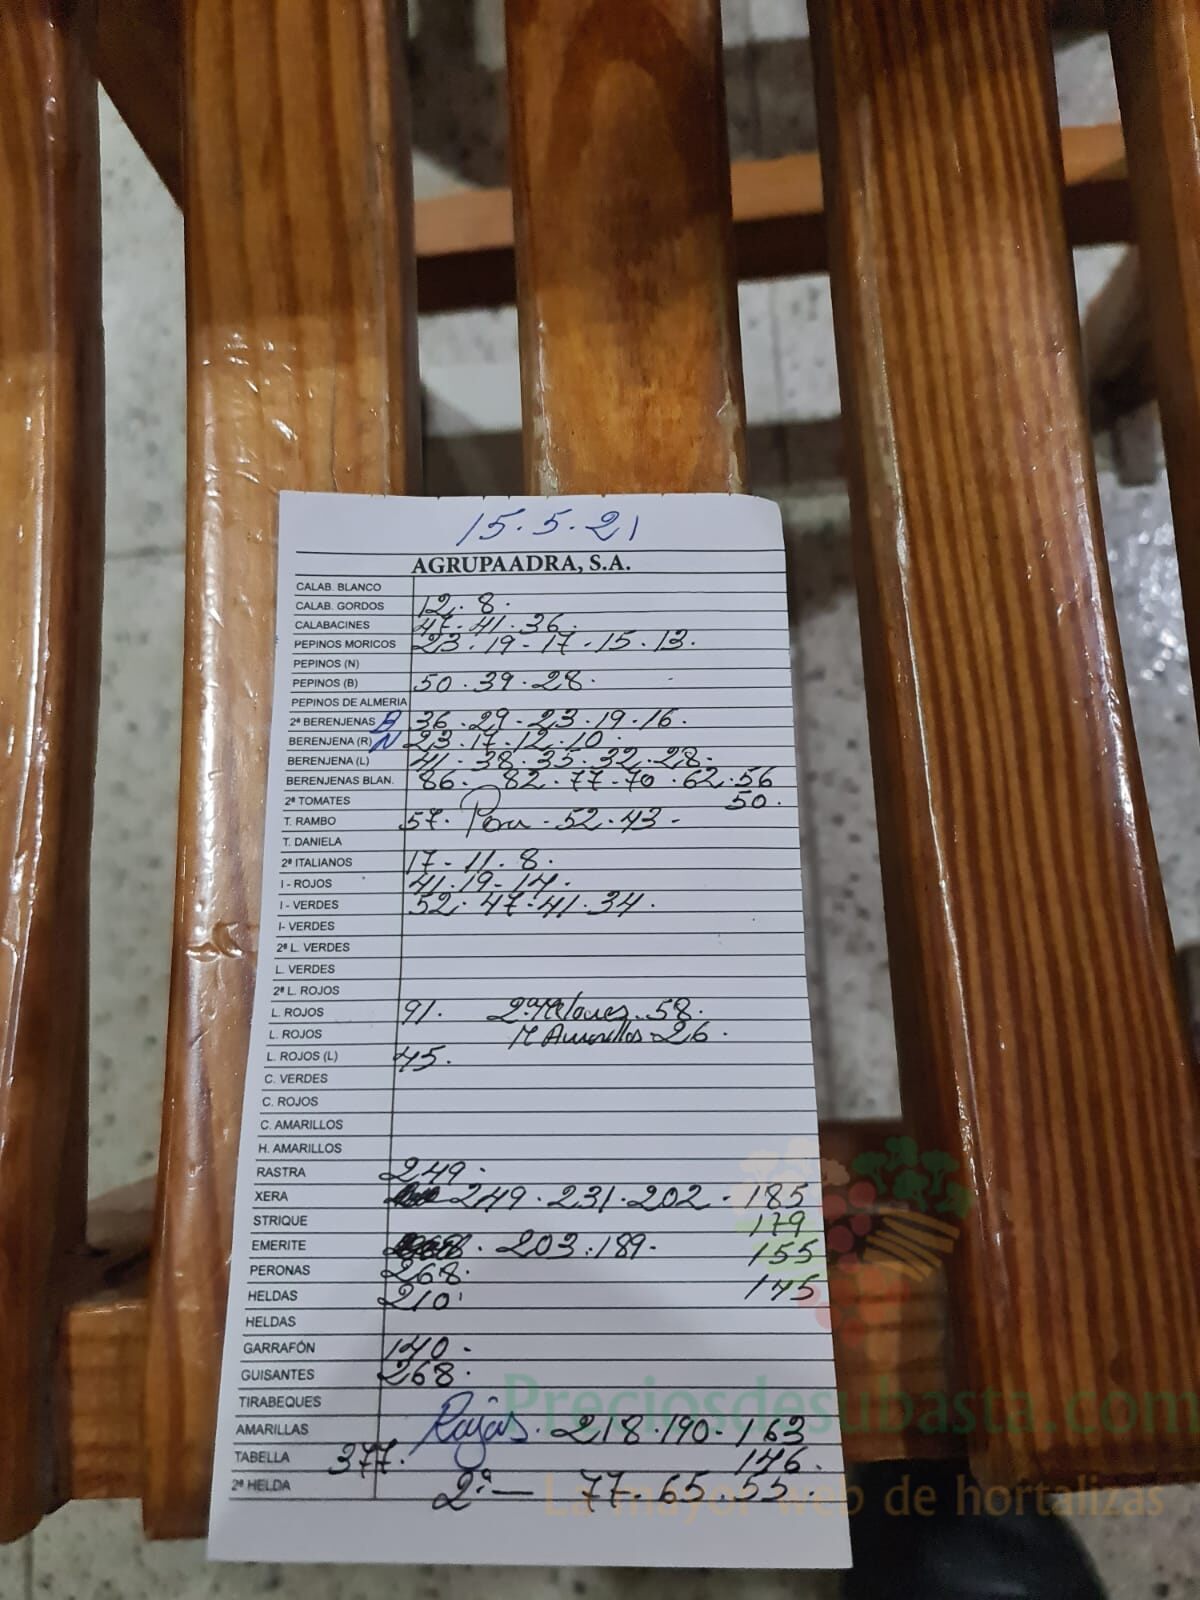 15.5.21
AGRUPAADRA, S.A.
CALAB. BLANCO
CALAB. GORDOS 12. 8.
CALABACINES 47-41.36.
PEPINOS MORICOS 23.19-17-15.13.
PEPINOS (N)
PEPINOS (B) 50.39.28.
PEPINOS DE ALMERIA
2ª BERENJENAS B 36.29-23.19.16.
BERENJENA (R) N 23.17.12.10.
BERENJENA (L) 41-38.35.32.28.
BERENJENAS BLAN. 86. 82.77-70.62.56
2ª TOMATES 50.
T. RAMBO 57. Pera - 52.43-
T. DANIELA
2ª ITALIANOS 17-11.8.
I - ROJOS 41.19-14.
I - VERDES 52.47-41.34.
I- VERDES
2ª L. VERDES
L. VERDES
2ª L. ROJOS
L. ROJOS 91. 2ª Melones. 58.
L. ROJOS M Amarillos 26.
L. ROJOS (L) 45.
C. VERDES
C. ROJOS
C. AMARILLOS
H. AMARILLOS
RASTRA 249.
XERA 249.231.202-185
STRIQUE 179
EMERITE 203.189. 155
PERONAS 268.
HELDAS 210. 145
HELDAS
GARRAFÓN 140.
GUISANTES 268.
TIRABEQUES
AMARILLAS Rojas. 218.190-163
TABELLA 377. 146.
2ª HELDA 2ª- 77-65.55.
Preciosdesubasta.com
La mayor web de hortalizas